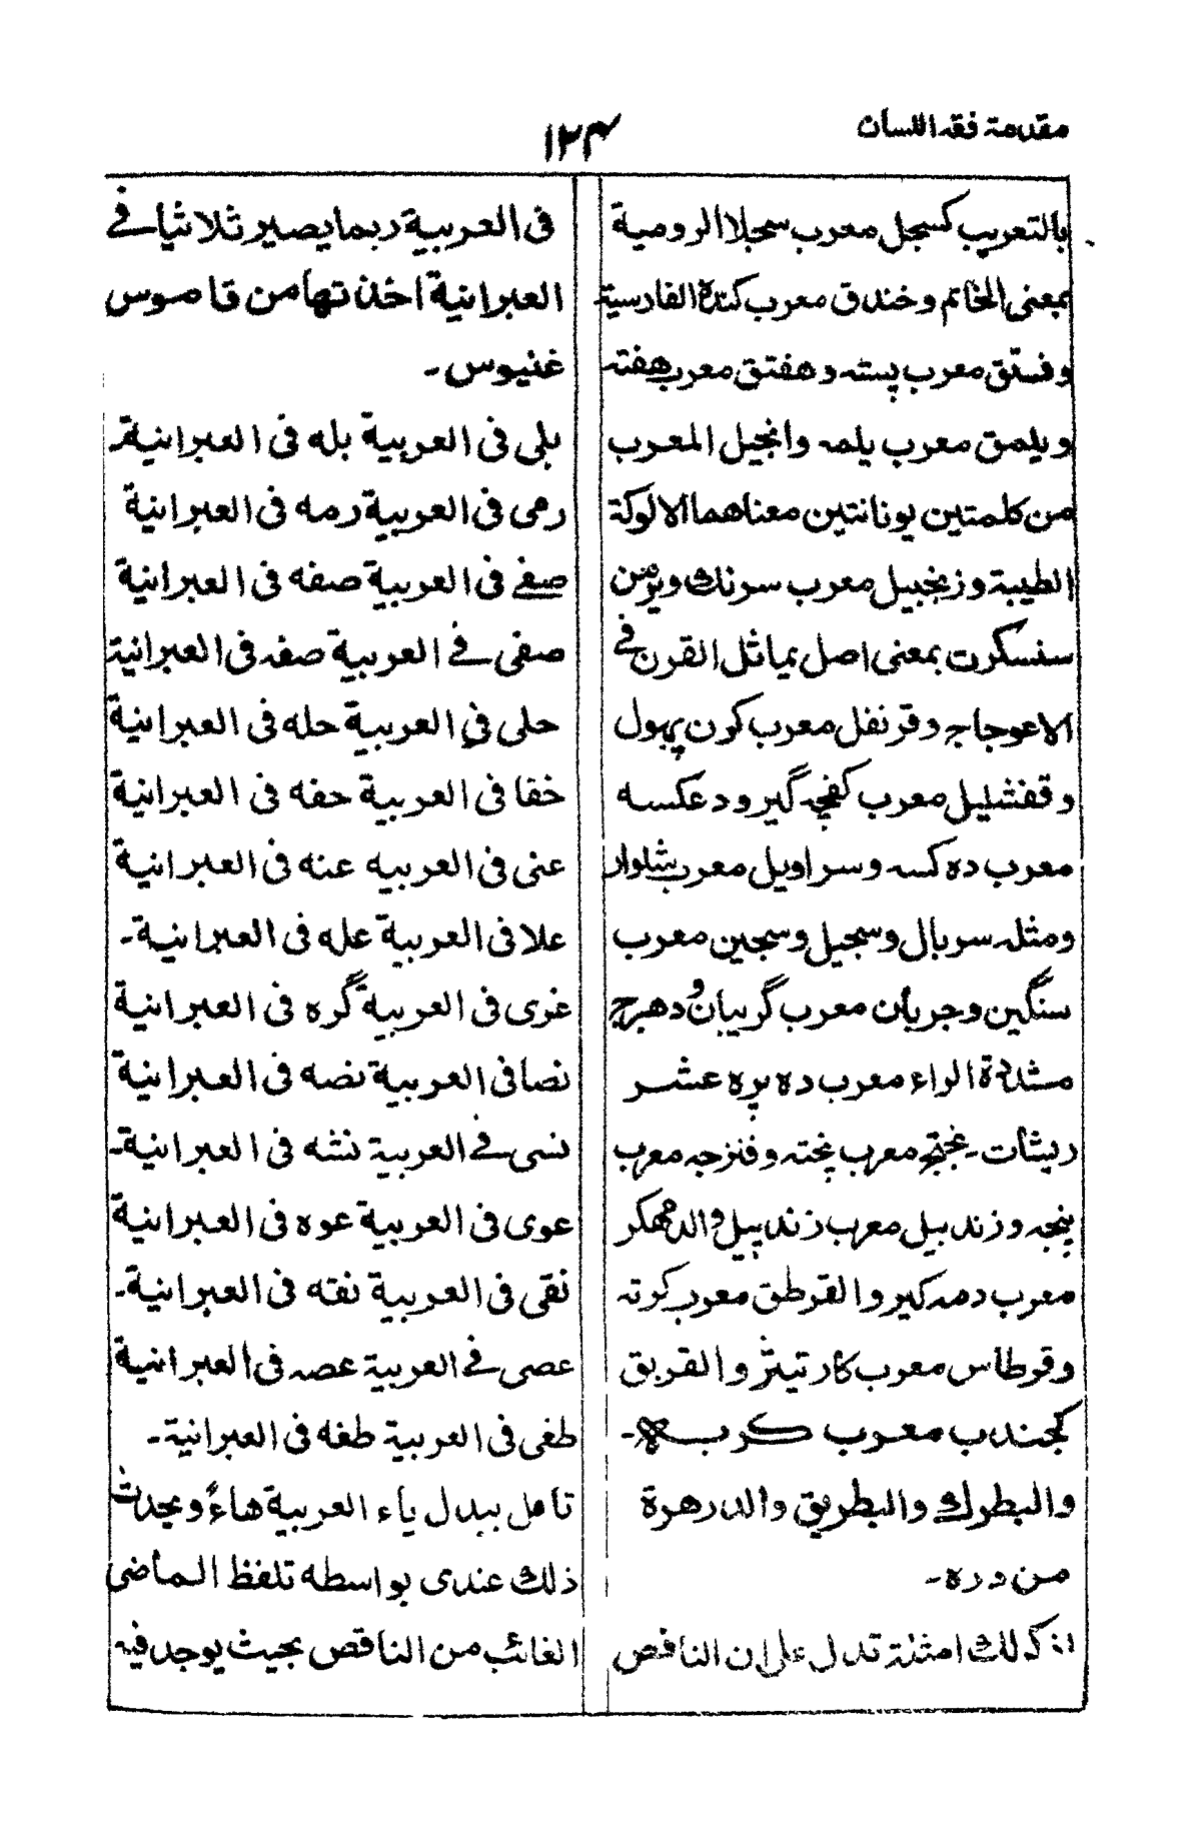 مقدمة فقه اللسان
١٢٤
بالتعريب كسجل معرب سجلا الرومية
بمعنى الخاتم وخندق معرب كنده الفارسية
وفستق معرب پسته وهفتق معرب هفته
ويلمق معرب يلمه وانجيل المعرب
من كلمتين يونانتين معناهما الالوكة
الطيبة وزنجبيل معرب سرنك وير من
سنسكرت بمعنى اصل يماثل القرن في
الاعوجاج وقرنفل معرب كرن پهول
وقفشليل معرب كفچه گير ودعكسه
معرب ده كسه وسراويل معرب شلوار
ومثله سربال وسجيل وسجين معرب
سنگين وجربان معرب گريبان ودهرج
مشددة الراء معرب ده پره عشر
ريشات۔ معرب پخته وفنزجه معرب
پنجه وزندبيل معرب زندپيل والدمهكر
معرب دمه كير والقرطق معرب كرته
وقرطاس معرب كارتيثز والقربق
كجندب معرب كربه۔
والبطرك والبطريق والدرهرة
من دره۔
اذكر لك امثلة تدل على ان الناقص
فى العربية ربما يصير ثلاثيا في
العبرانية اخذتها من قاموس
غنيوس۔
بلى فى العربية بله فى العبرانية
رمى فى العربية رمه فى العبرانية
صفے فى العربية صفه فى العبرانية
صفى في العربية صفه فى العبرانية
حلى في العربية حله فى العبرانية
خفا فى العربية حفه فى العبرانية
عنى فى العربيه عنه فى العبرانية
علا فى العربية عله فى العبرانية۔
غرى فى العربية گره فى العبرانية
نصا فى العربية نضه فى العبرانية
نسى في العربية نشه فى العبرانية۔
عوى فى العربية عوه فى العبرانية
نقى فى العربية نقه فى العبرانية۔
عصى في العربية عصه فى العبرانية
طغى فى العربية طغه فى العبرانية۔
تامل ببدل ياء العربية هاءً ويحدث
ذلك عندى بواسطه تلفظ الماضى
الغائب من الناقص بحيث يوجد فيه